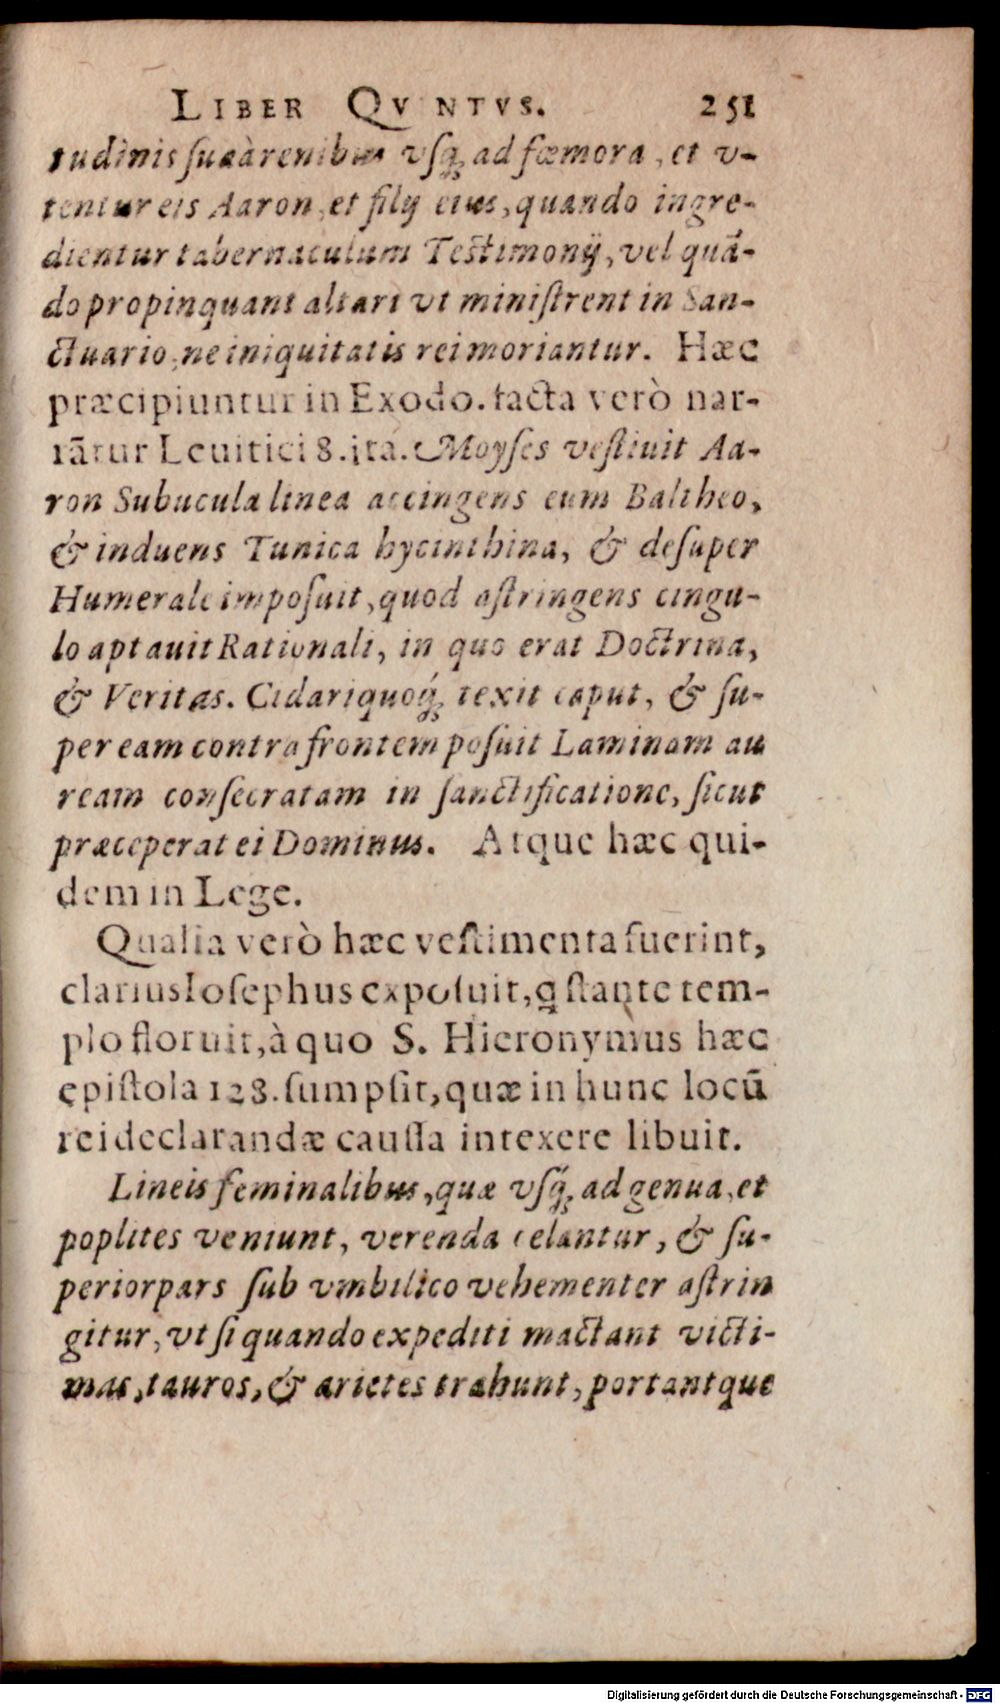 LIBER QVNTVS. 251
tudinis suæ à renibus vsq́; ad fœmora, et v-
tentur eis Aaron, et filij eius, quando ingre-
dientur tabernaculum Testimonij, vel quā-
do propinquant altari vt ministrent in San-
ctuario, ne iniquitatis rei moriantur. Hæc
præcipiuntur in Exodo. facta verò nar-
rātur Leuitici 8. ita. Moyses vestiuit Aa-
ron Subucula linea accingens eum Baltheo,
& induens Tunica hycinthina, & desuper
Humerale imposuit, quod astringens cingu-
lo aptauit Rationali, in quo erat Doctrina,
& Veritas. Cidari quoq́; texit caput, & su-
per eam contra frontem posuit Laminam au
ream consecratam in sanctificatione, sicut
præceperat ei Dominus. Atque hæc qui-
dem in Lege.
Qualia verò hæc vestimenta fuerint,
clarius Iosephus exposuit, q stante tem-
plo floruit, à quo S. Hieronymus hæc
epistola 128. sumpsit, quæ in hunc locū
rei declarandæ caussa intexere libuit.
Lineis feminalibus, quæ vsq́; ad genua, et
poplites veniunt, verenda celantur, & su-
perior pars sub vmbilico vehementer astrin
gitur, vt si quando expediti mactant victi-
mas, tauros, & arietes trahunt, portantque
Digitalisierung gefördert durch die Deutsche Forschungsgemeinschaft - DFG